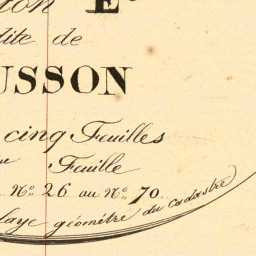 on E.
dite de
USSON
cinq Feuilles
Feuille
Nº 26 au Nº 70.
laye géomètre du Cadastre